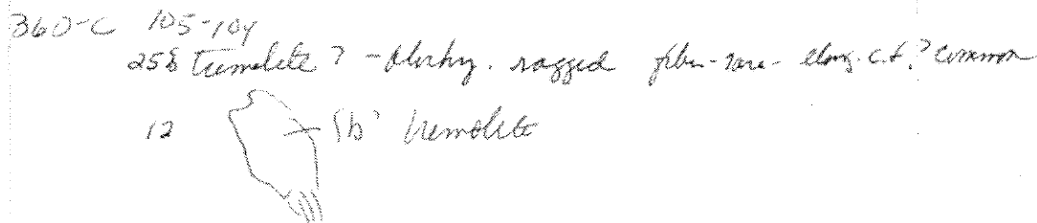 360-C 105-104
25% Tremolite? - blocky. ragged fiber-rare- elong. c.f.? common
12 tremolite